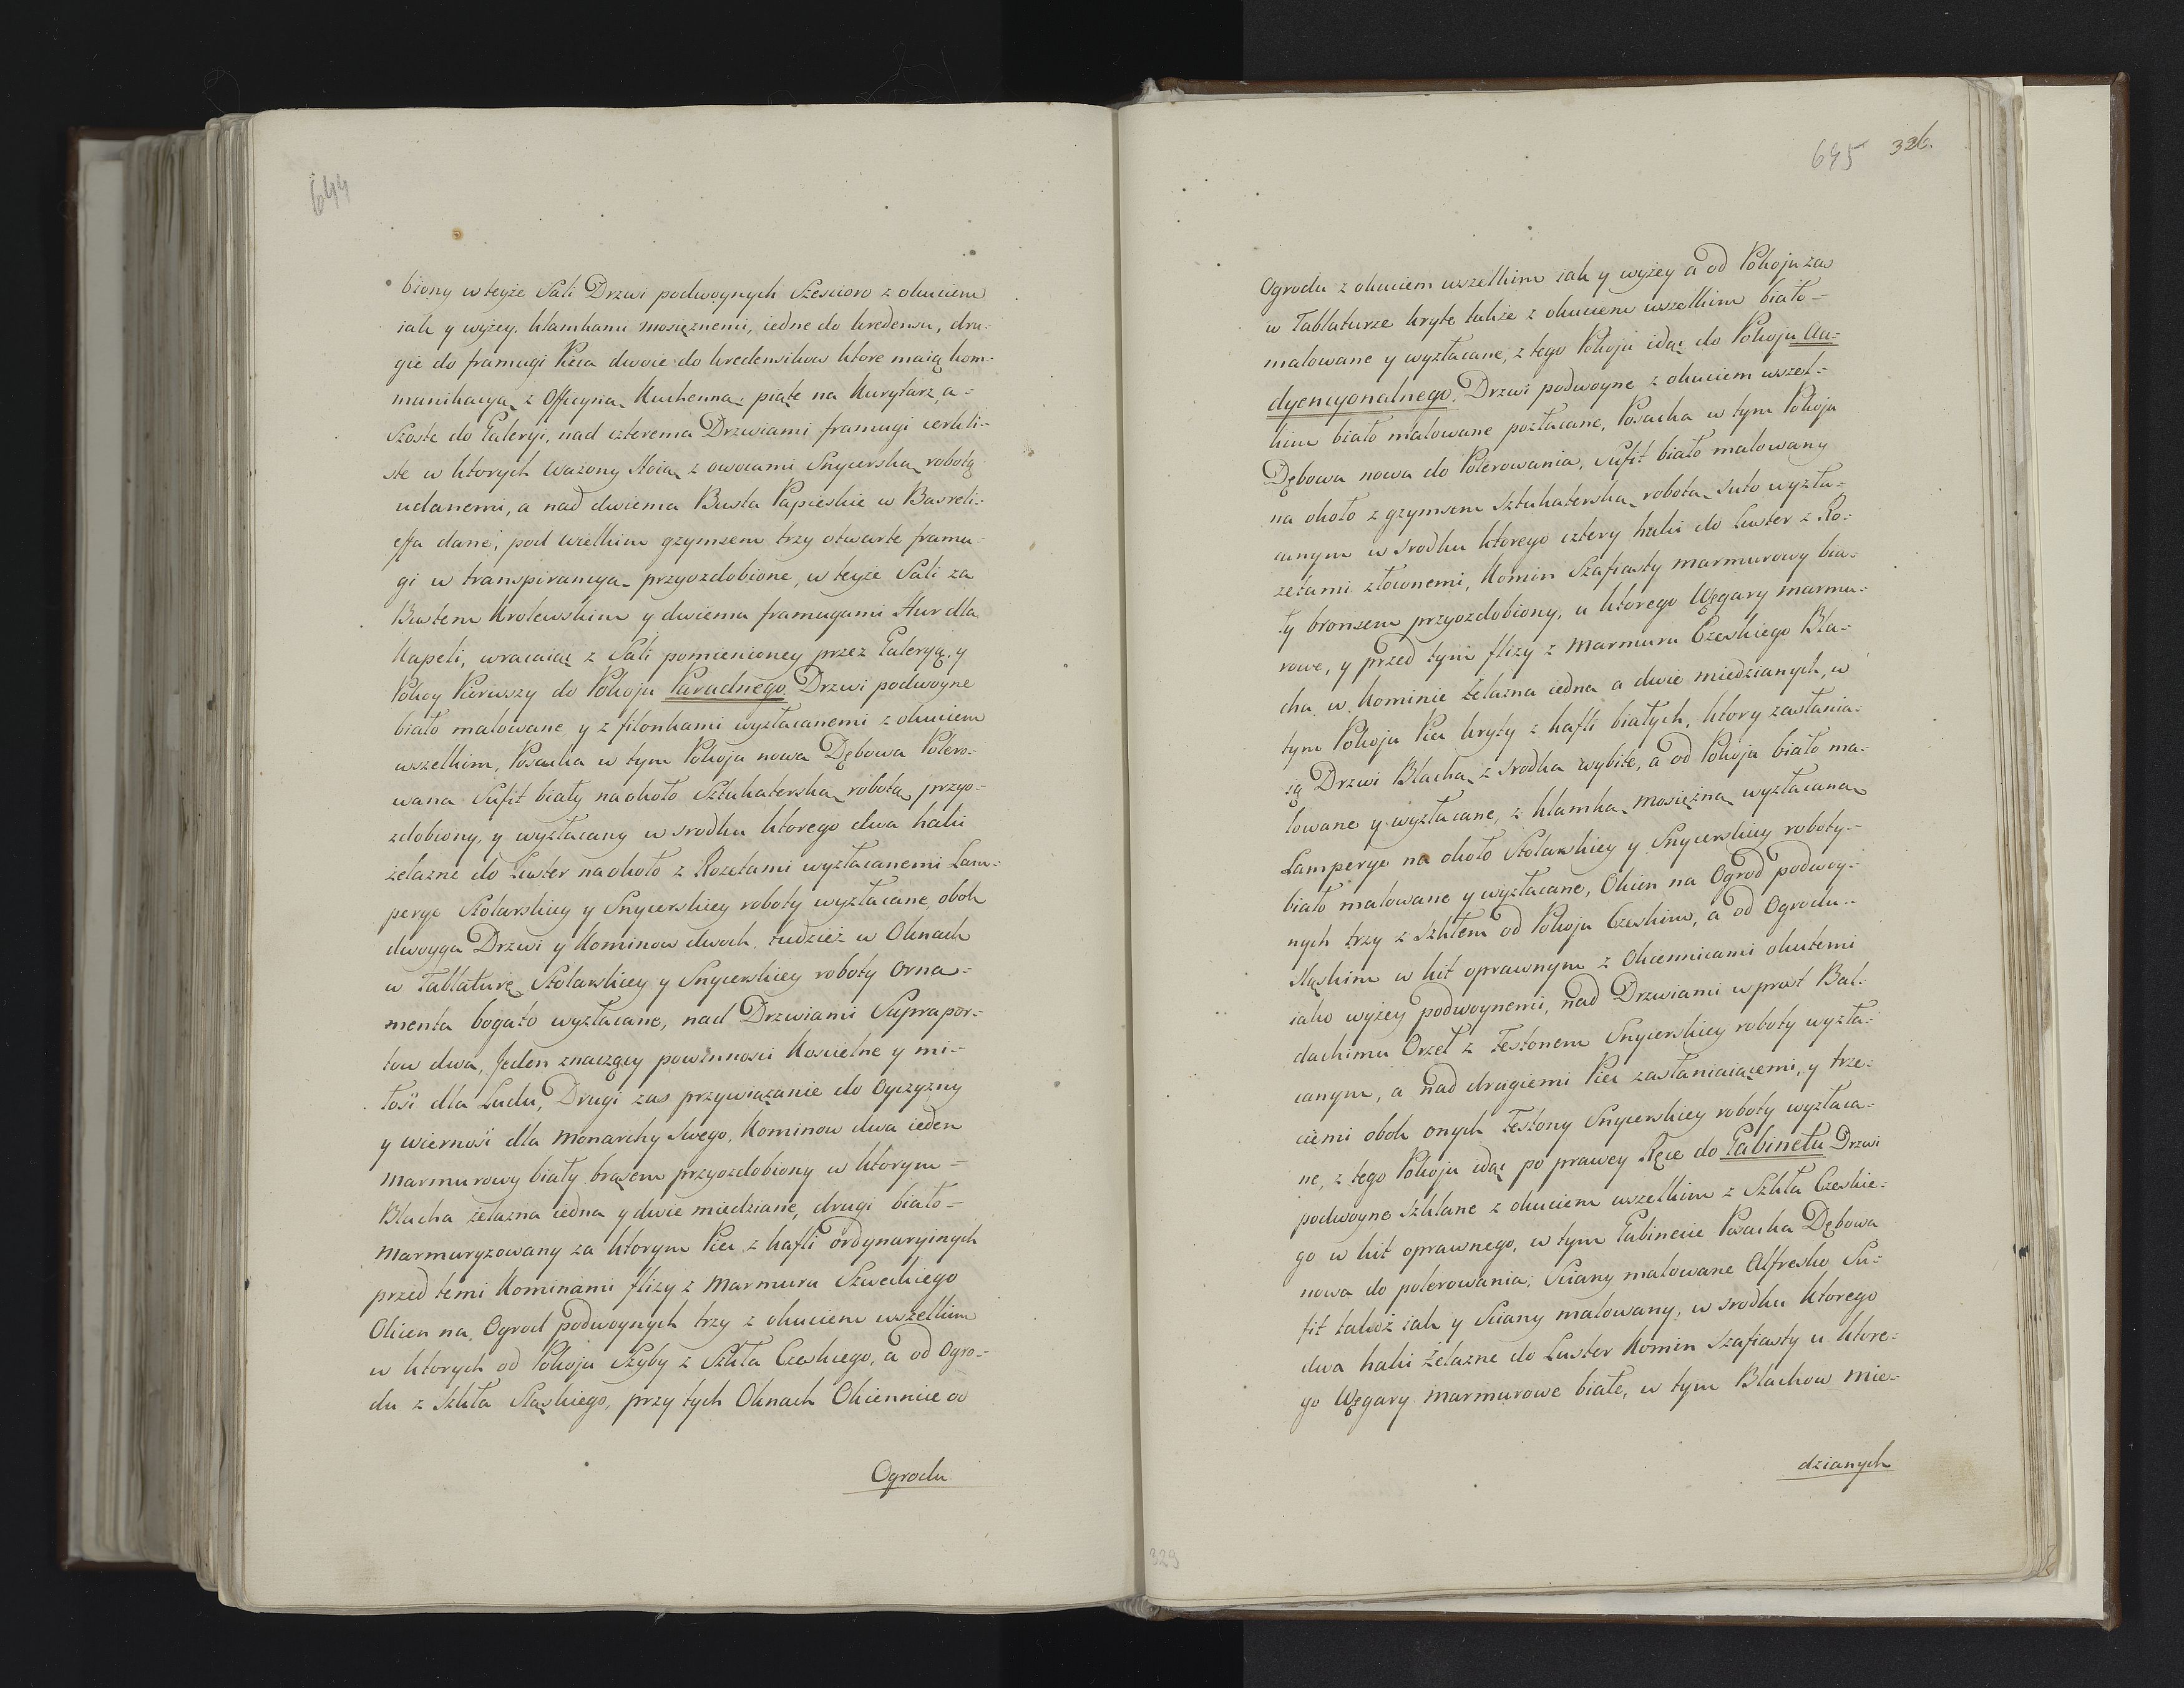 644
biony w teyże Sali Drzwi podwoynych Szescioro z okuciem
iak y wyżey, klamkami mosiężnemi, iedne do kredensu, dru-
gie do framugi Pieca dwoie do kredensikow ktore maią kom-
munikacyą z Officyną Kuchenną, piąte na Kurytarz, a-
Szoste do Galeryi, nad czterema Drzwiami framugi cerkli-
ste w ktorych Wazony stoią z owocami Snycerską robotą
udanemi, a nad dwiema Busta Papieskie w Basreli-
effa dane, pod wielkim gzymsem trzy otwarte framu-
gi w transpirancyą przyozdobione, w teyże Sali za
Bustem Krolewskim y dwiema framugami Hur dla
Kapeli, wracaiąc z Sali pomienioney przez Galeryą, y
Pokoy Pierwszy do Pokoju Paradnego. Drzwi podwoyne
biało malowane y z filonkami wyzłacanemi z okuciem
wszelkim, Posacka w tym Pokoju nowa Dębowa Polero-
wana Sufit biały naokoło Sztukaterską robotą przyo-
zdobiony, y wyzłacany w srodku ktorego dwa haki
żelazne do Luster naokoło z Rozetami wyzłacanemi Lam-
perye Stolarskiey y Snycerskiey roboty wyzłacane, obok
dwoyga Drzwi y Kominow dwoch, tudzież w Oknach
w Tablaturę Stolarskiey y Snycerskiey roboty Orna-
menta bogato wyzłacane, nad Drzwiami Suprapor-
tow dwa, Jeden znaczący powinnosci Koscielne y mi-
łosi dla Ludu, Drugi zas przywiązanie do Oyczyzny
y wiernosi dla Monarchy Swego, Kominow dwa ieden
Marmurowy biały brązem przyozdobiony w ktorym-
Blacha żelazna iedna y dwie miedziane, drugi biało-
Marmuryzowany za ktorym Piec z kafli ordynaryinych
przed temi Kominami flizy z Marmuru Szwedkiego
Okien na Ogrod podwoynych trzy z okuciem wszelkim
w ktorych od Pokoju Szyby z Szkła Czeskiego, a od Ogro-
du z Szkła Sląskiego, przy tych Oknach Okiennice od
Ogrodu
645 326.
Ogrodu z okuciem wszelkim iak y wyżey a od Pokoju zas
w Tablaturze kryte także z okuciem wszelkim biało-
malowane y wyzłacane, z tego Pokoju idąc do Pokoju Au-
dyencyonalnego. Drzwi podwoyne z okuciem wszel-
kim biało malowane pozłacane, Posacka w tym Pokoju
Dębowa nowa do Polerowania, Sufit biało malowany
na około z gzymsem Sztukaterską robotą suto wyzła-
canym w srodku ktorego cztery haki do Luster z Ro-
zetami złoconemi, Komin Szafiasty marmurowy bia-
ły bronzem przyozdobiony, u ktorego Węgary marmu-
rowe, y przed tym flizy z Marmuru Czeskiego Bla-
cha w Kominie żelazna iedna a dwie miedzianych, w
tym Pokoju Piec kryty z kafli białych, ktory zasłania-
ią Drzwi Blachą z srodka wybite, a od Pokoju biało ma-
lowane y wyzłacane, z klamką Mosiężną wyzłacaną
Lamperye na około Stolarskiey y Snycerskiey roboty-
biało malowane y wyzłacane, Okien na Ogrod podwoy-
nych trzy z Szkłem od Pokoju Czeskim, a od Ogrodu-
Sląskim w kit oprawnym z Okiennicami okutemi
iako wyżey podwoynemi, nad Drzwiami wprost Bal-
dachimu Orzeł z Festonem Snycerskiey roboty wyzła-
canym, a nad drugiemi Piec zasłaniaiącemi, y trze-
ciemi obok onych Festony Snycerskiey roboty wyzłaca-
ne, z tego Pokoju idąc po prawey Ręce do Gabinetu Drzwi
podwoyne Szklane z okuciem wszelkim z Szkła Czeskie-
go w kit oprawnego, w tym Gabinecie Posacka Dębowa
nowa do polerowania, Sciany malowane Alfresko Su-
fit takoż iak y Sciany malowany, w srodku ktorego
dwa haki żelazne do Luster Komin Szafiasty u ktore-
go Węgary Marmurowe białe, w tym Blachow mie-
dzianych
329